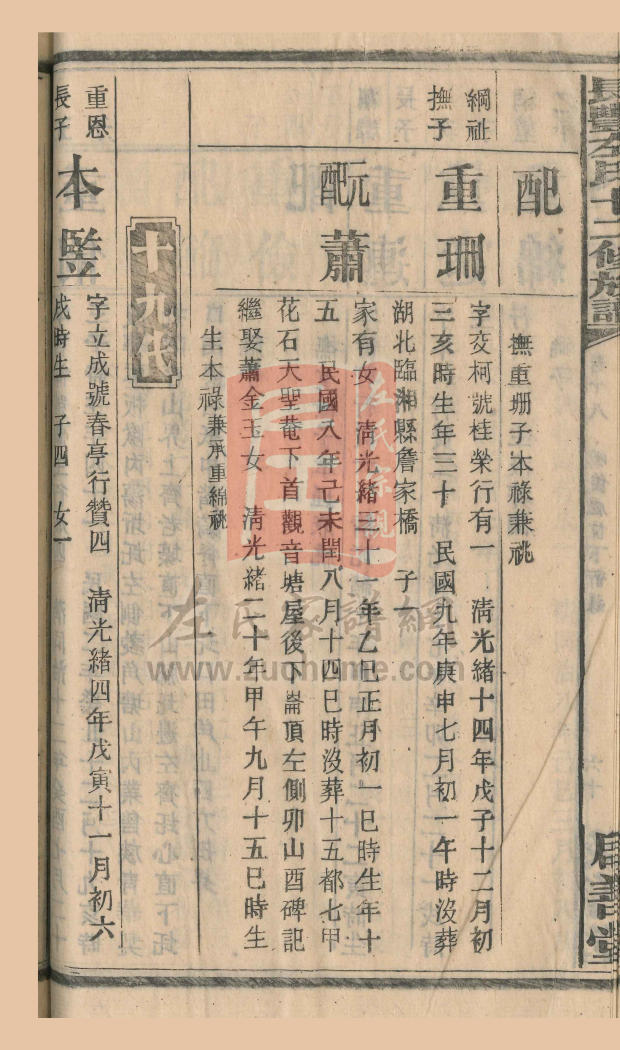 長豐左氏十二修族譜
啟善堂
配
撫重珊子本祿兼祧
綱祉
撫子
重珊
字交柯號桂榮行有一 清光緒十四年戊子十二月初
三亥時生年三十 民國九年庚申七月初一午時沒葬
湖北臨湘縣詹家橋 子一
元配
蕭
家有女 清光緒三十一年乙巳正月初一巳時生年十
五 民國八年己未閏八月十四巳時沒葬十五都七甲
花石天聖菴下首觀音塘屋後下崙頂左側卯山酉碑記
繼娶蕭金玉女 清光緒二十年甲午九月十五巳時生
生本祿兼承重綿祧
十九代
重恩
長子
本竪
字立成號春亭行贊四 清光緒四年戊寅十一月初六
戌時生 子四 女一
左氏宗親
左氏家譜網
www.zuohome.com